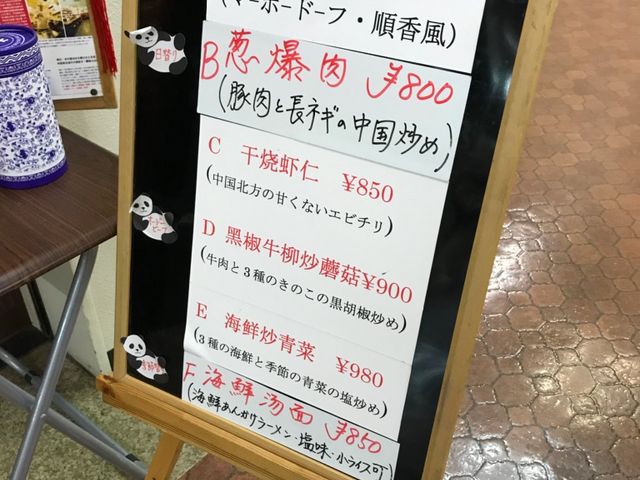 (マーボードーフ・順香風)
B 葱爆肉 ¥800
(豚肉と長ネギの中国炒め)
C 干烧虾仁 ¥850
(中国北方の甘くないエビチリ)
D 黑椒牛柳炒蘑菇¥900
(牛肉と3種のきのこの黒胡椒炒め)
E 海鮮炒青菜 ¥980
(3種の海鮮と季節の青菜の塩炒め)
F 海鮮汤面 ¥850
(海鮮あんかけラーメン・塩味・小ライス可)
日替り